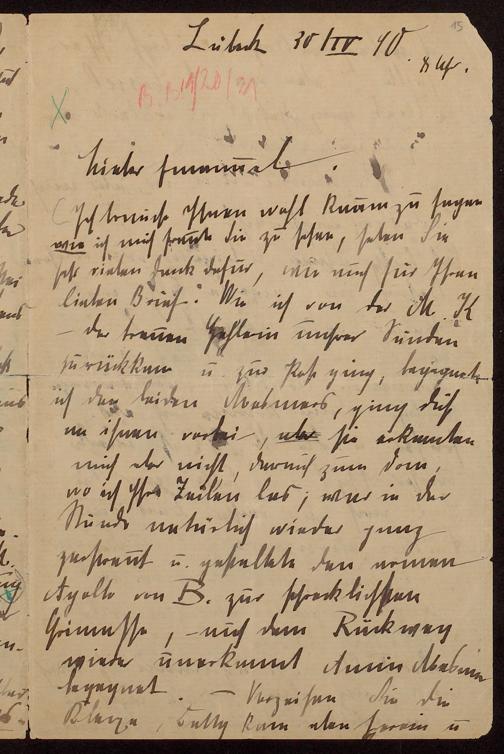 15
Lübeck 20/IV 90
8 Uhr.
B. B 14/20/31
Lieber Emanuel.
Ich brauche Ihnen wohl kaum zu sagen
wie ich mich freute die zu sehen, haben Sie
sehr vielen Dank dafür, wie auch für Ihren
lieben Brief! Wie ich von der M. K
– der treuen Hehlerin unsrer Sünden
zurückkam u. zur Post ging, begegnete
ich den beiden, ging dicht
an ihnen vorbei, aber sie erkannten
mich aber nicht, darauf zum Dom,
wo ich Ihre Zeilen las; war in der
Stunde natürlich wieder ganz
zerstreut u. gestaltete den armen
Apollo von B. zur schrecklichsten
Grimasse, – auf dem Rückweg
wieder unerkannt
begegnet. – Verzeihen Sie die
kam eben herein u